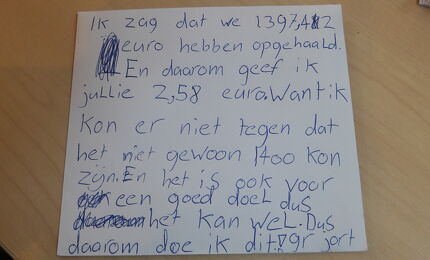 Ik zag dat we 1397,42
euro hebben opgehaald.
En daarom geef ik
jullie 2,58 euro.want ik
kon er niet tegen dat
het niet gewoon 1400 kon
zijn. En het is ook voor
een goed doel dus
het kan weL. Dus
daarom doe ik dit! gr jort